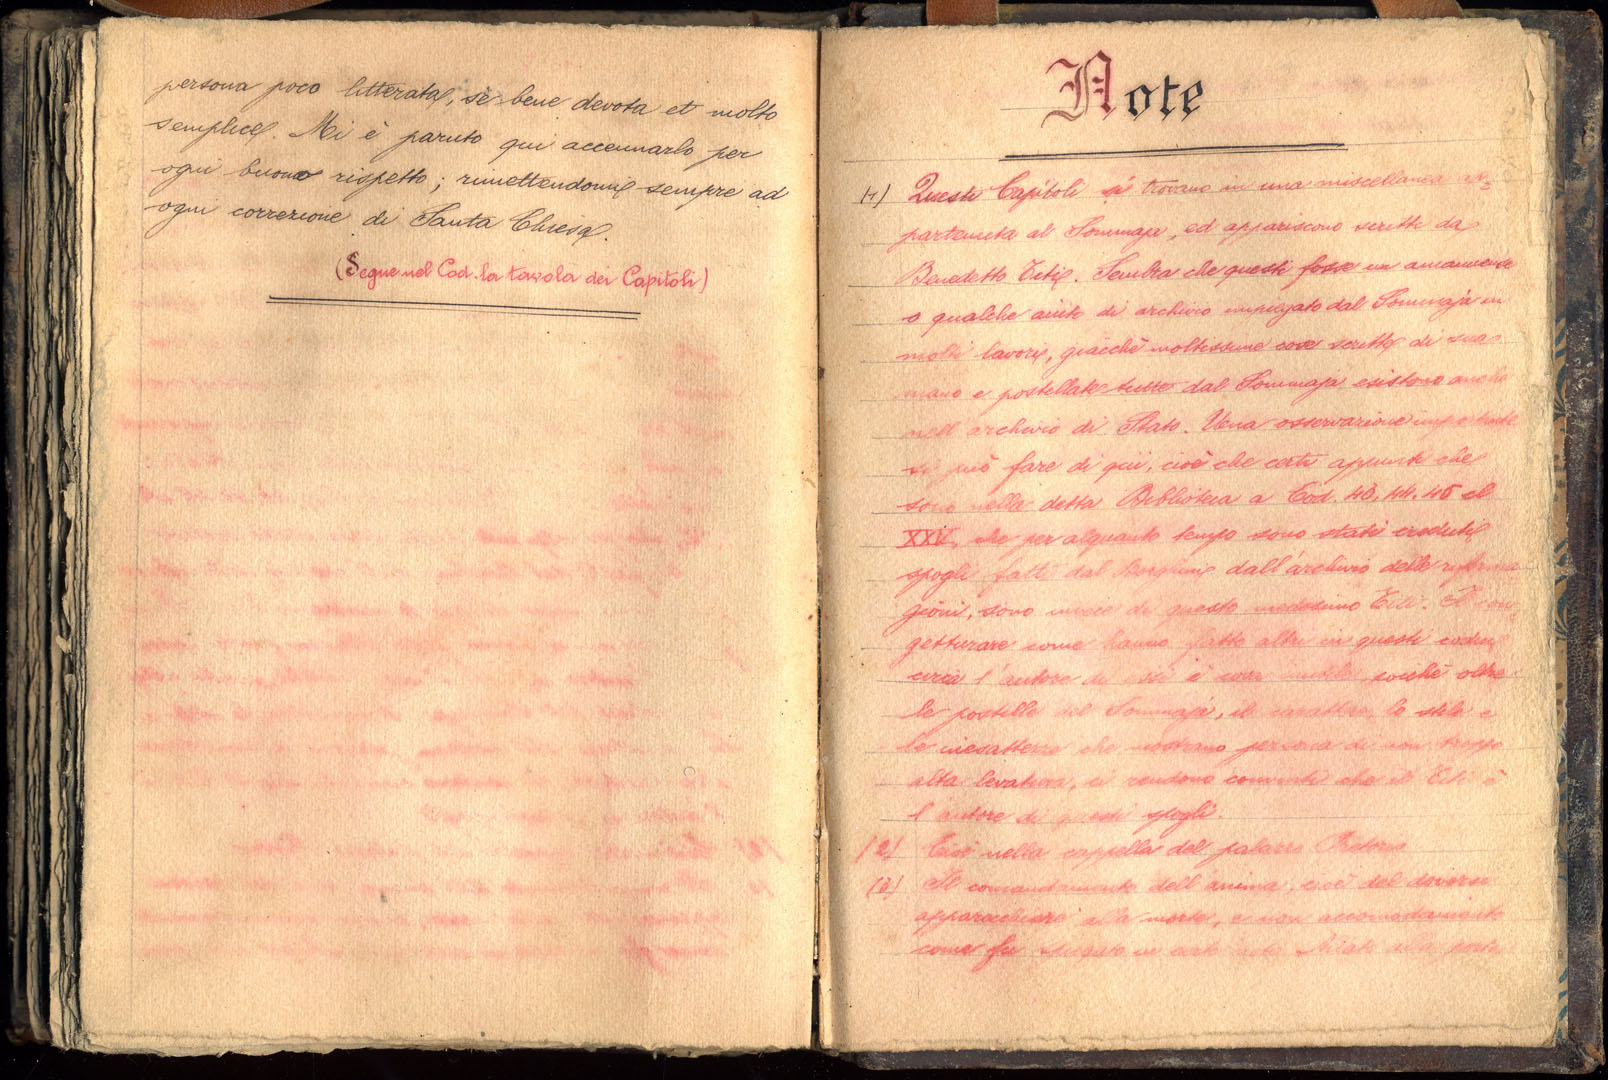 persona poco litterata, se bene devota et molto
semplice. Mi è paruto qui accennarlo per
ogni buono rispetto; rimettendomi sempre ad
ogni correzione di Santa Chiesa.
(Segue nel Cod. la tavola dei Capitoli)
Note
(1) Questi Capitoli si trovano in una miscellanea ap=
partenuta al Sommaja, ed appariscono scritti da
Benedetto Titi. Sembra che questi fosse un amanuense
o qualche aiuto di archivio impiegato dal Sommaja in
molti lavori, giacchè moltissime cose scritte di sua
mano e postillate dal Sommaja esistono anche
nell archivio di Stato. Una osservazione importante
si può fare di qui, cioè che certi appunti che
sono nella detta Biblioteca a Cod. 43. 44. 45 el
XXV, che per alquanto tempo sono stati creduti
spogli fatti dal Borghini dall'archivio delle riforma
gioni, sono invece di questo medesimo Titi. Il con
getturare come hanno fatto altri in questi codici
circa l'autore di essi è cosa inutile, sicchè oltre
le postille del Sommaja, il carattere, lo stile e
le inesattezze che mostrano persona di non troppo
alta levatura, ci rendono convinti che il Titi è
l'autore di questi spogli.
(2) Cioè nella cappella del palazzo Pretorio
(3) Il comandamento dell'anima, cioè del doversi
apparecchiare alla morte, e non accomodamento
come fu spiegato in certe note alla